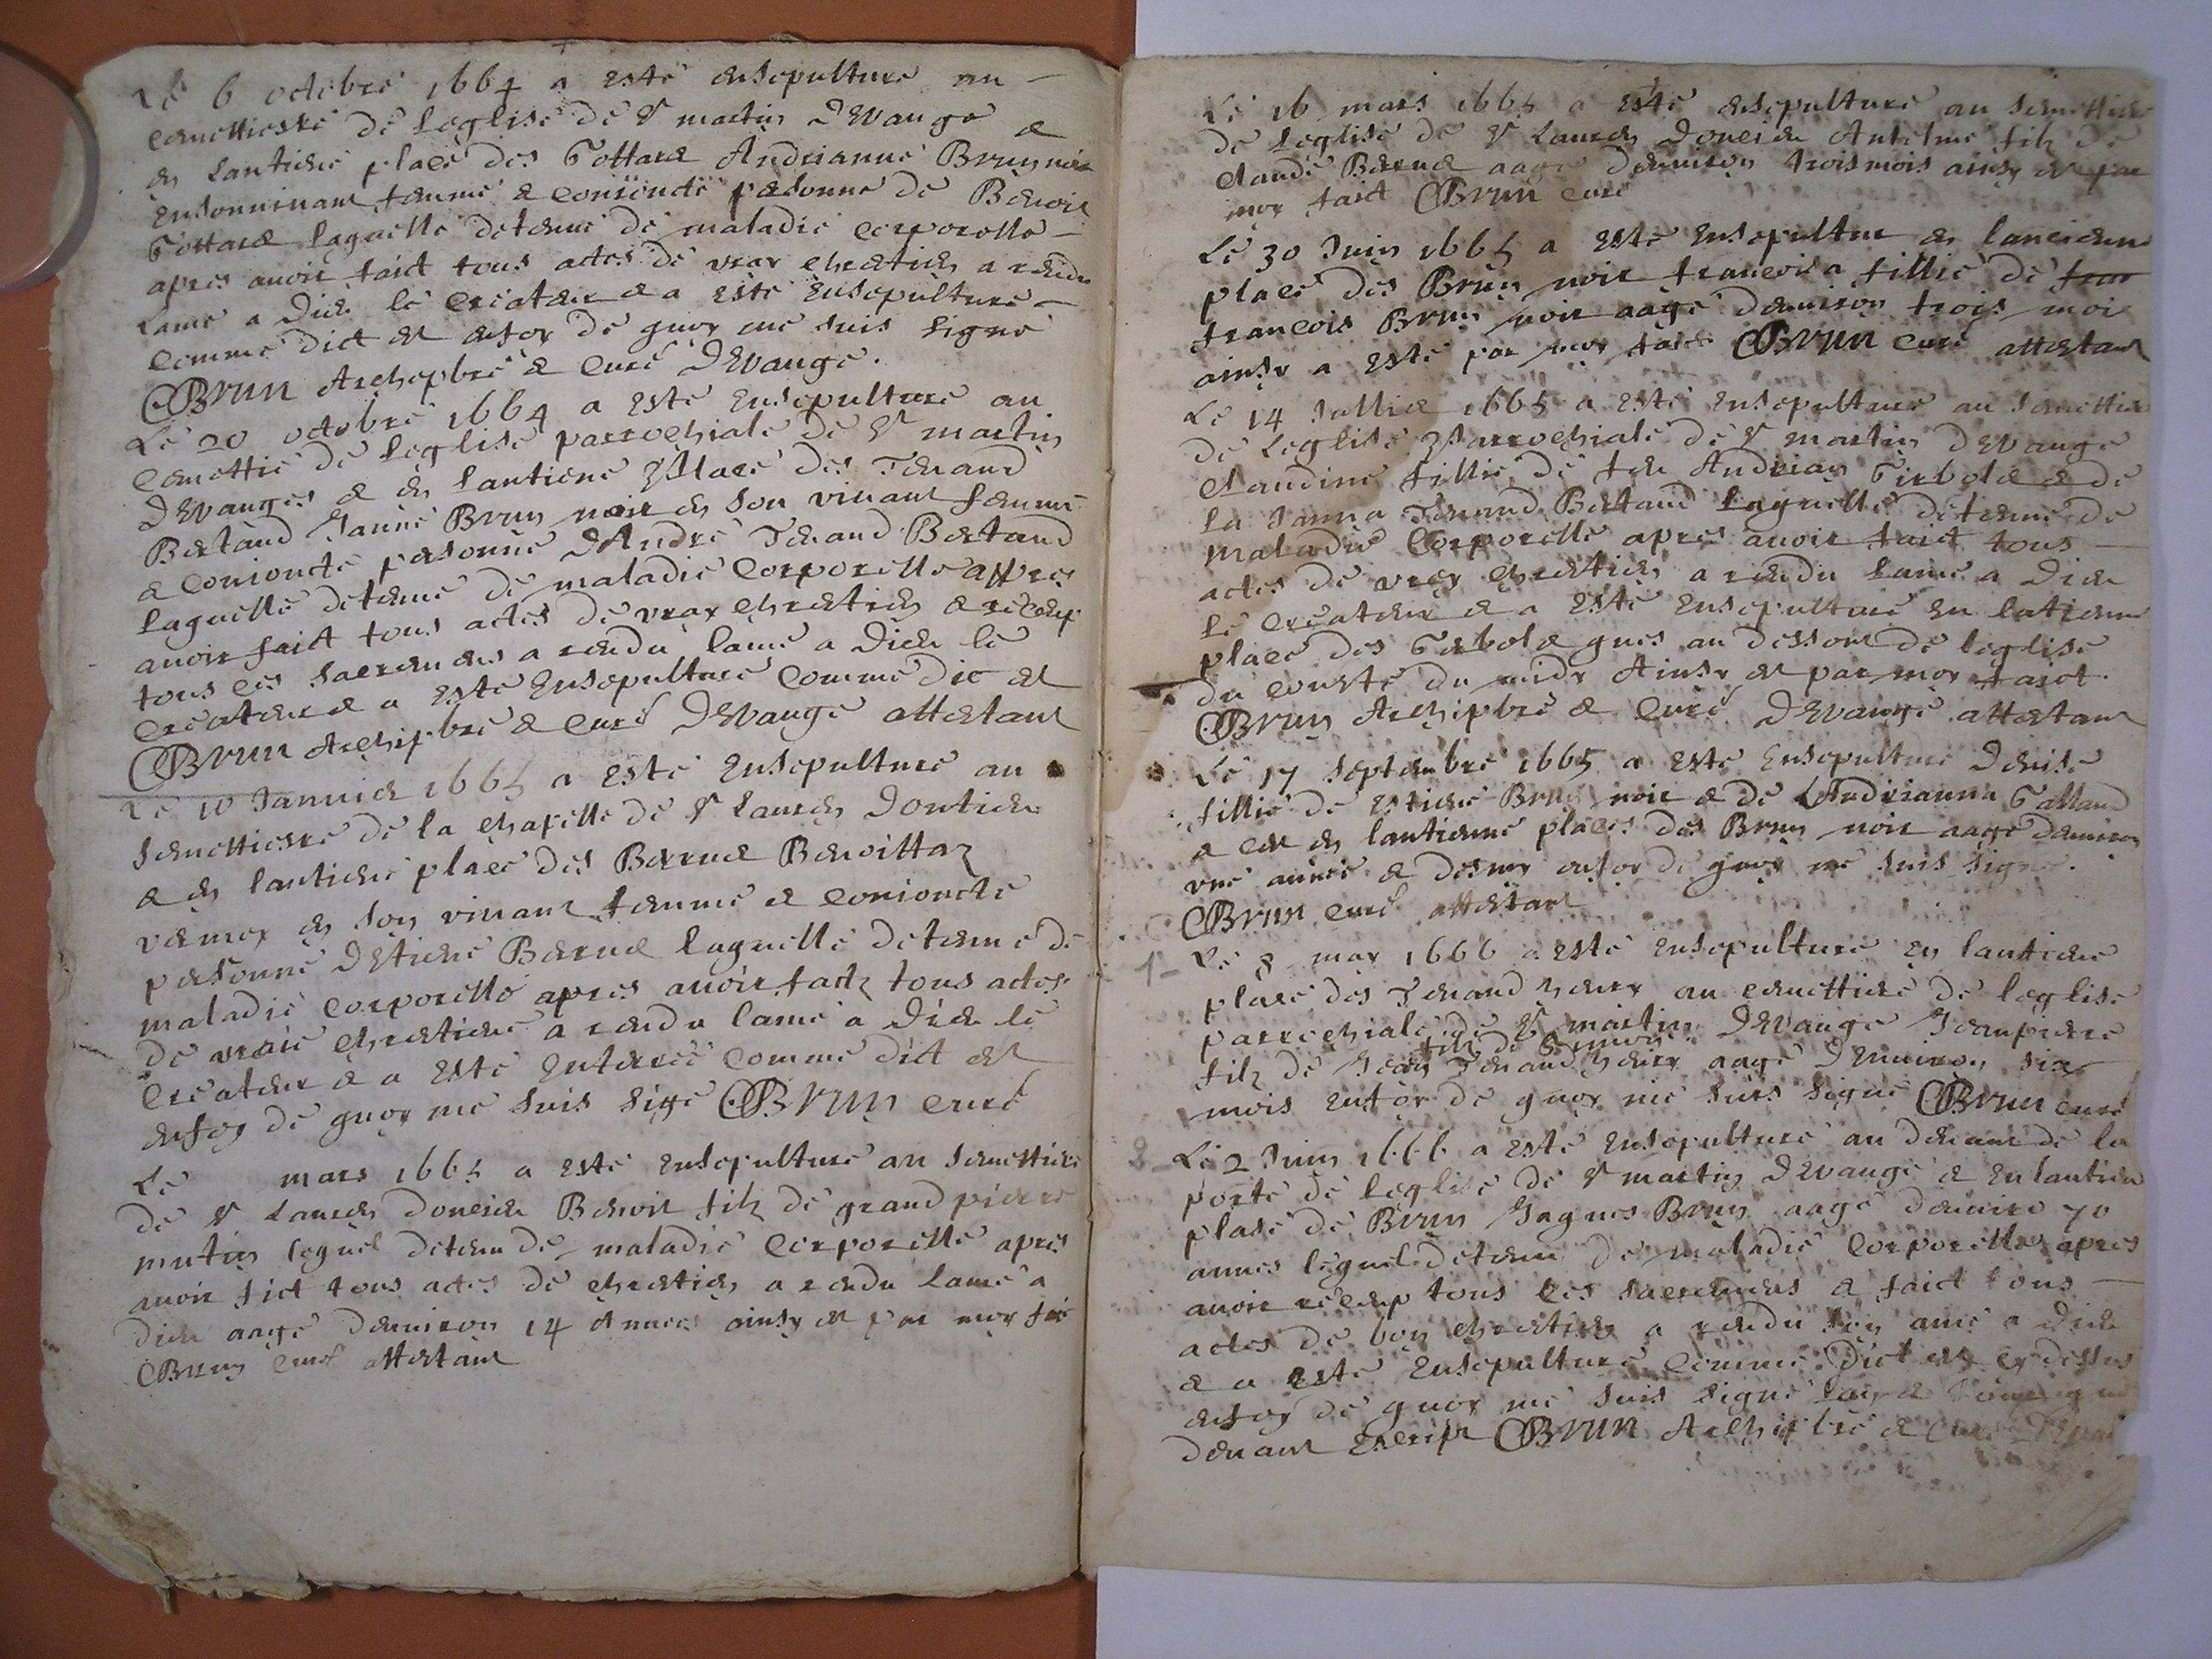 Le 6 octobre 1664 a esté ensepulture au
cemettiere de Leglise de St martin DEvange &
en lantiene place des Gottard Andrianne Brunnoir
Ensonvivant femme & conioncte personne de Benoit
Gottard laquelle detenue de maladie corporelle
apres avoir faict tous actes de vray chrestien a rendu
lame a Dieu le createur & a este Ensepulture
comme dict est enfoy de quoy me suis signe
Brun Archipbre & curé DEvange.
Le 20 octobre 1664 a este Ensepulture au
Cemettie de Leglise parrochiale de St martin
DEvanges & en lantiene Place des Tenand
Bertand Janne Brun noir en son vivant femme
& conioncte personne dAndré Tenand Bertand
laquelle detenue de maladie corporelle apres
avoir faict tous actes de vray chrestien & receup
tous ces sacremens a rendu lame a Dieu le
createur & a este Ensepulture comme dic est
Brun Archipbre & curé DEvange attestant
Le 10 Janvier 1665 a este Ensepulture au
semettiere de la chapelle de St Lauren
& en lantiene place des Bernd Benoitta
en son vivant femme & conioncte
personne DEtiene Bernd laquelle detenue de
maladie corporelle apres avoir faict tous actes
de vraie chrestiene a rendu lame a Dieu le
createur & a este enterree comme dict est
enfoy de quoy me suis sige Brun curé
Le mars 1665 a este ensepulture au semettiere
de St Lauren Benoit filz de grand pierre
mutin lequel detenu de maladie corporelle apres
avoir fict tous actes de chrestien a rendu lame a
Dieu aagé denviron 14 annees ainsy est par moy
Brun curé attestant
Le 16 mars 1665 a este ensepulture au semettiere
de Leglise de St Lauren Antelme filz de
claude Bernd aagé denviron trois mois ainsy est par
moy faict Brun curé
Le 30 Juin 1665 a este Ensepultur en lanciene
place des Brun noir francoisa fillie de fran
francois Brun noir aagé denviron trois moi
ainsy a este par moy faict Brun curé attestant
Le 14 Jullie 1665 a esté ensepulture au semettiere
de Leglise Parrochiale de St martin dEvange
Claudine fillie de feu Andrian & de
la Janna Tenand Bertand laquelle detenue de
maladie corporelle apres avoir faict tous
actes de vray chrestien a rendu lame a Dieu
Le createur & a este ensepulture en latiene
place des au dessous de leglise
du couste du midy Ainsy est par moy faict.
Brun Archipbre & curé DEvange attestant
Le 17 septembre 1665 a este Ensepulture Denise
fillie de Estiene Brun noir & de LAndrianna Gottand
& en lantienne places des Brun noir aagé denviron
une année & demy enfoy de quoy me suis signe.
Brun curé attestant
1- Le 8 may 1666 a esté ensepulture en lantiene
place des Tenand au cemettiere de leglise
parrochiale de St martin DEvange Jeanpiere
filz de Simon
filz de Jean Tenand aagé denviron six
mois enfoy de quoy me suis signe Brun curé
2- Le 2 Juin 1666 a este ensepulture au devant de la
porte de leglise de St martin DEvange & en lantien
place de Brun Jaques Brun aagé denviro 70
annes lequel detenu de maladie corporelle apres
avoir receup tous les sacremens & faict tous
actes de bon chrestien a rendu son ame a Dieu
& a este ensepulture comme dict est cydessus
enfoy de quoy me suis signe
devant escript Brun Archipbre & curé